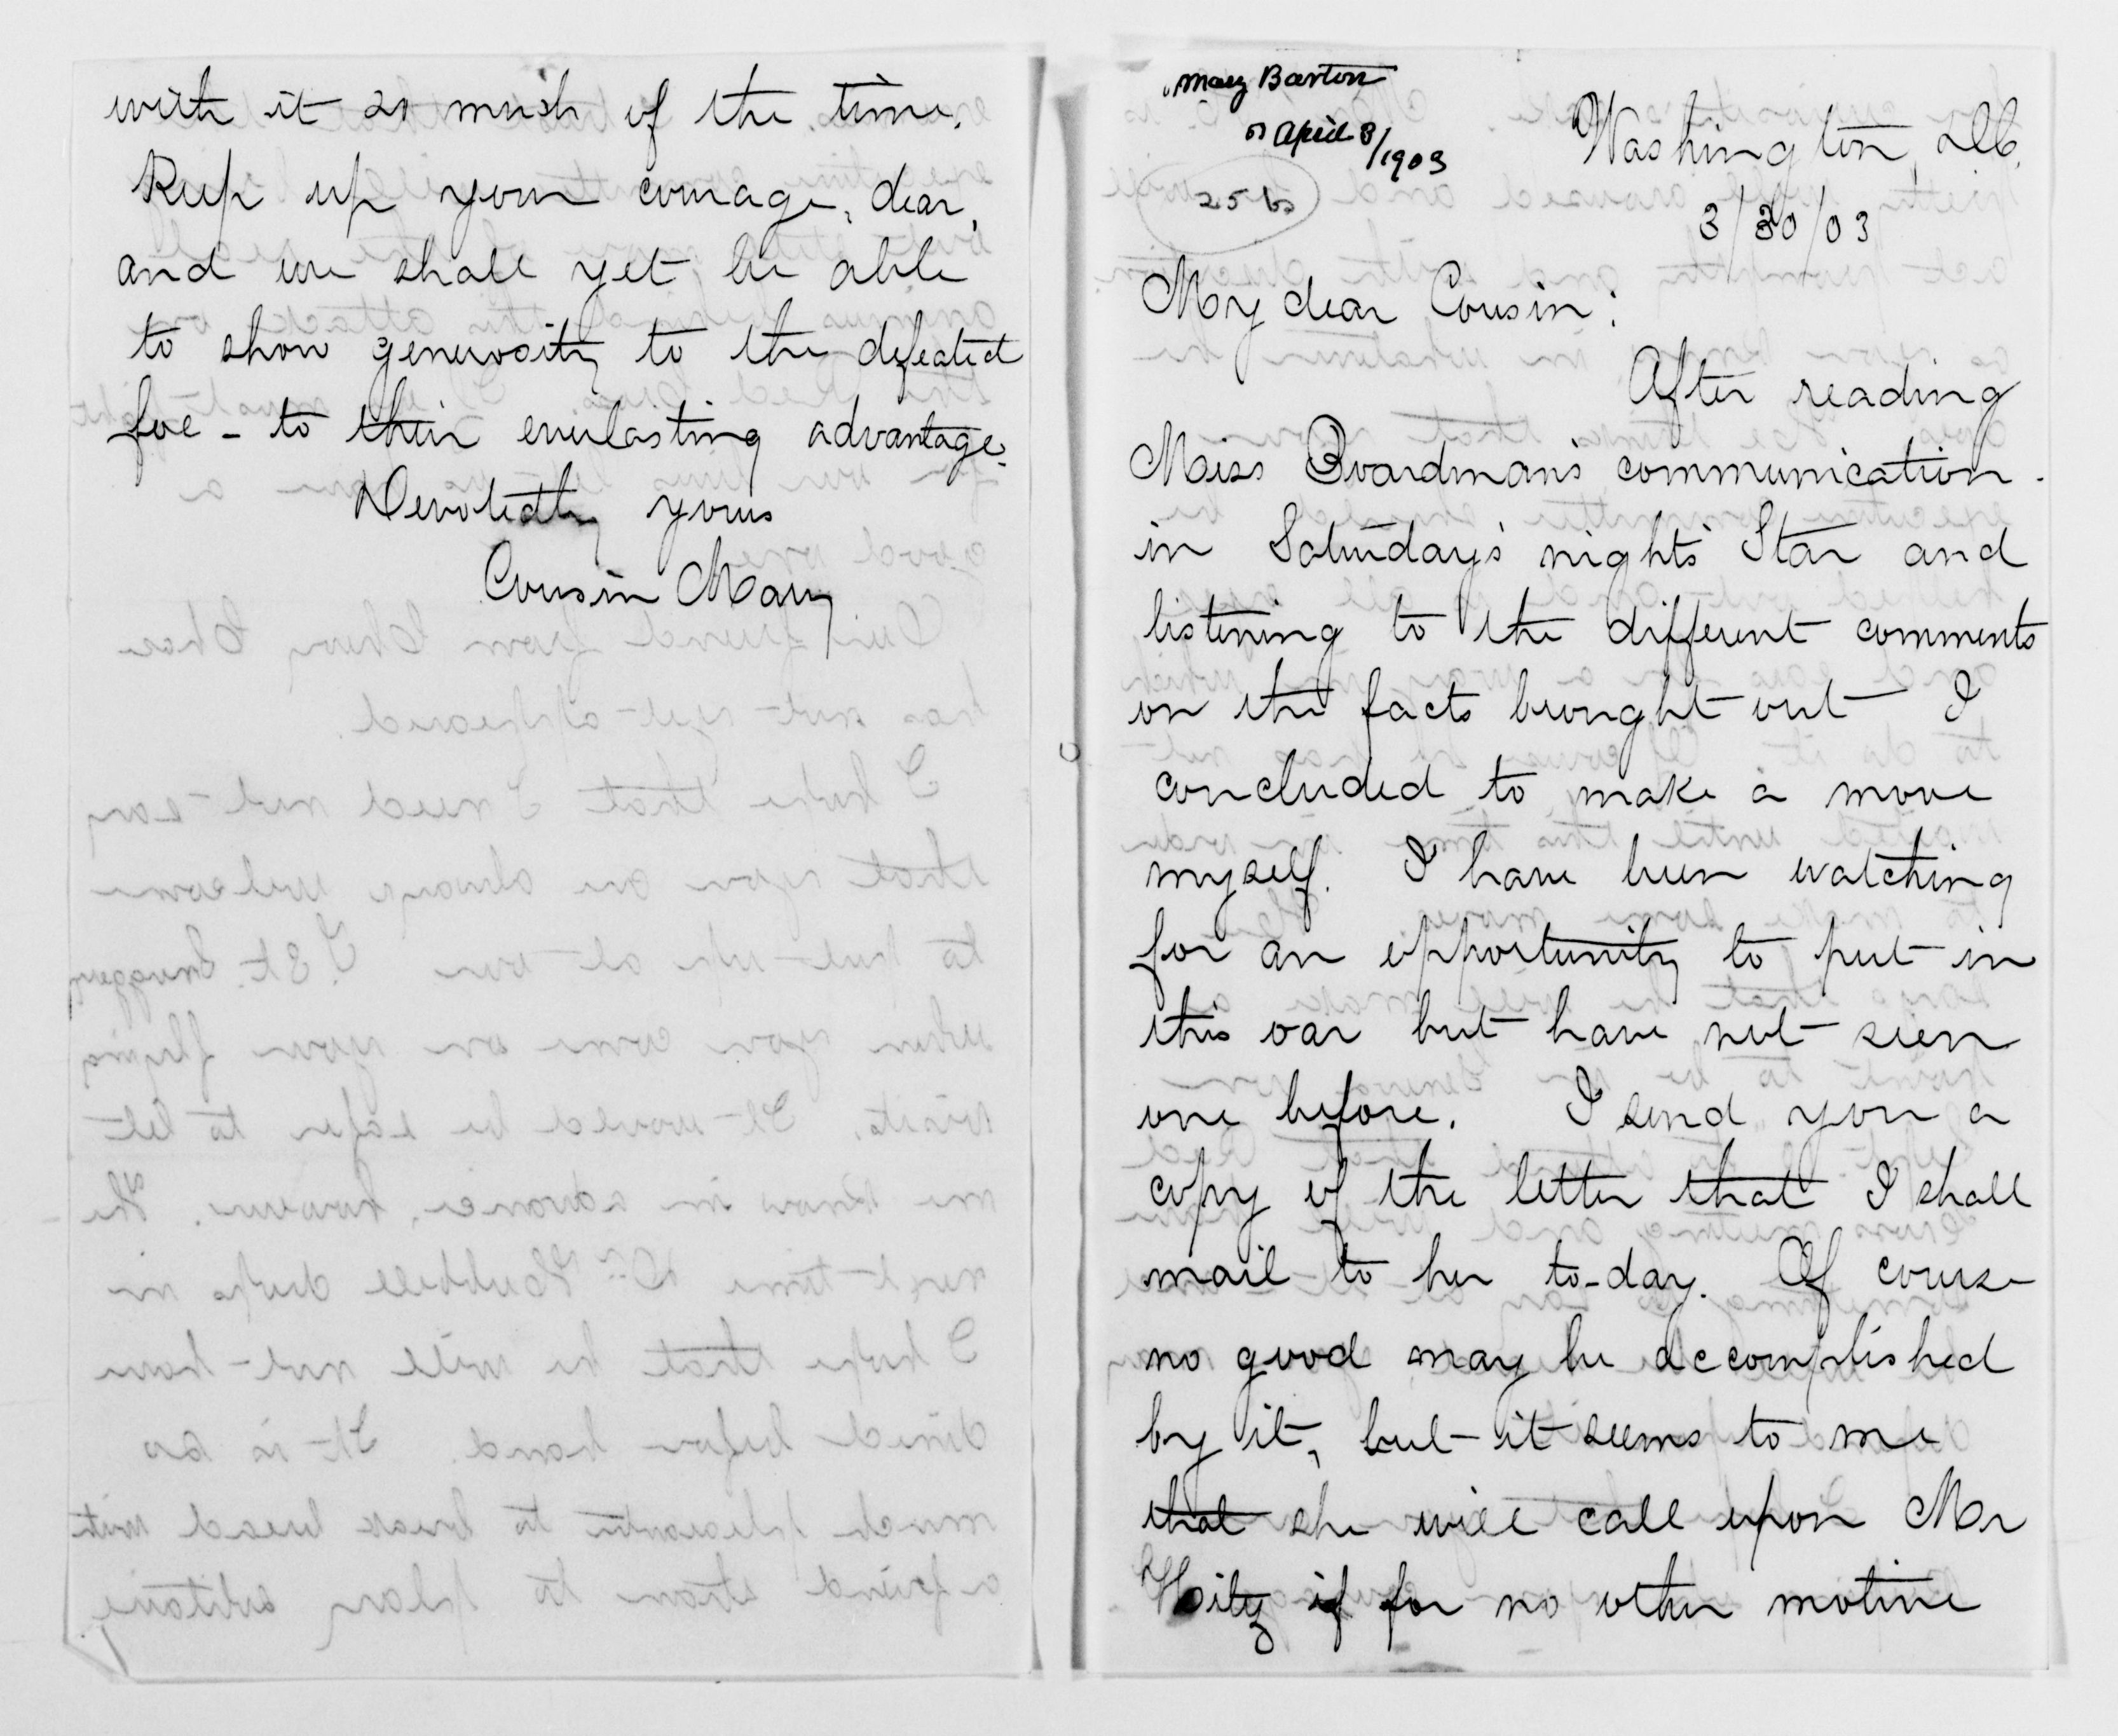 with it so much of the time.
Keep up your courage, dear,
and we shall yet be able
to show generosity to the defeated
foe - to their everlasting advantage.
Devotedly yours
Cousin Mary
Mary Barton
April 3/1903
Washington, D.C.
3/30/03
My dear Cousin:
After reading
Miss Boardman's communication
in Saturday's night's Star and
listening to the different comments
on the facts brought out I
concluded to make a move
myself. I have been watching
for an opportunity to put in
this oar but have not seen
one before. I send you a
copy of the letter that I shall
mail to her to-day. Of course
no good may be accomplished
by it, but it seems to me
that she will call upon Mr
Hitz if for no other motive